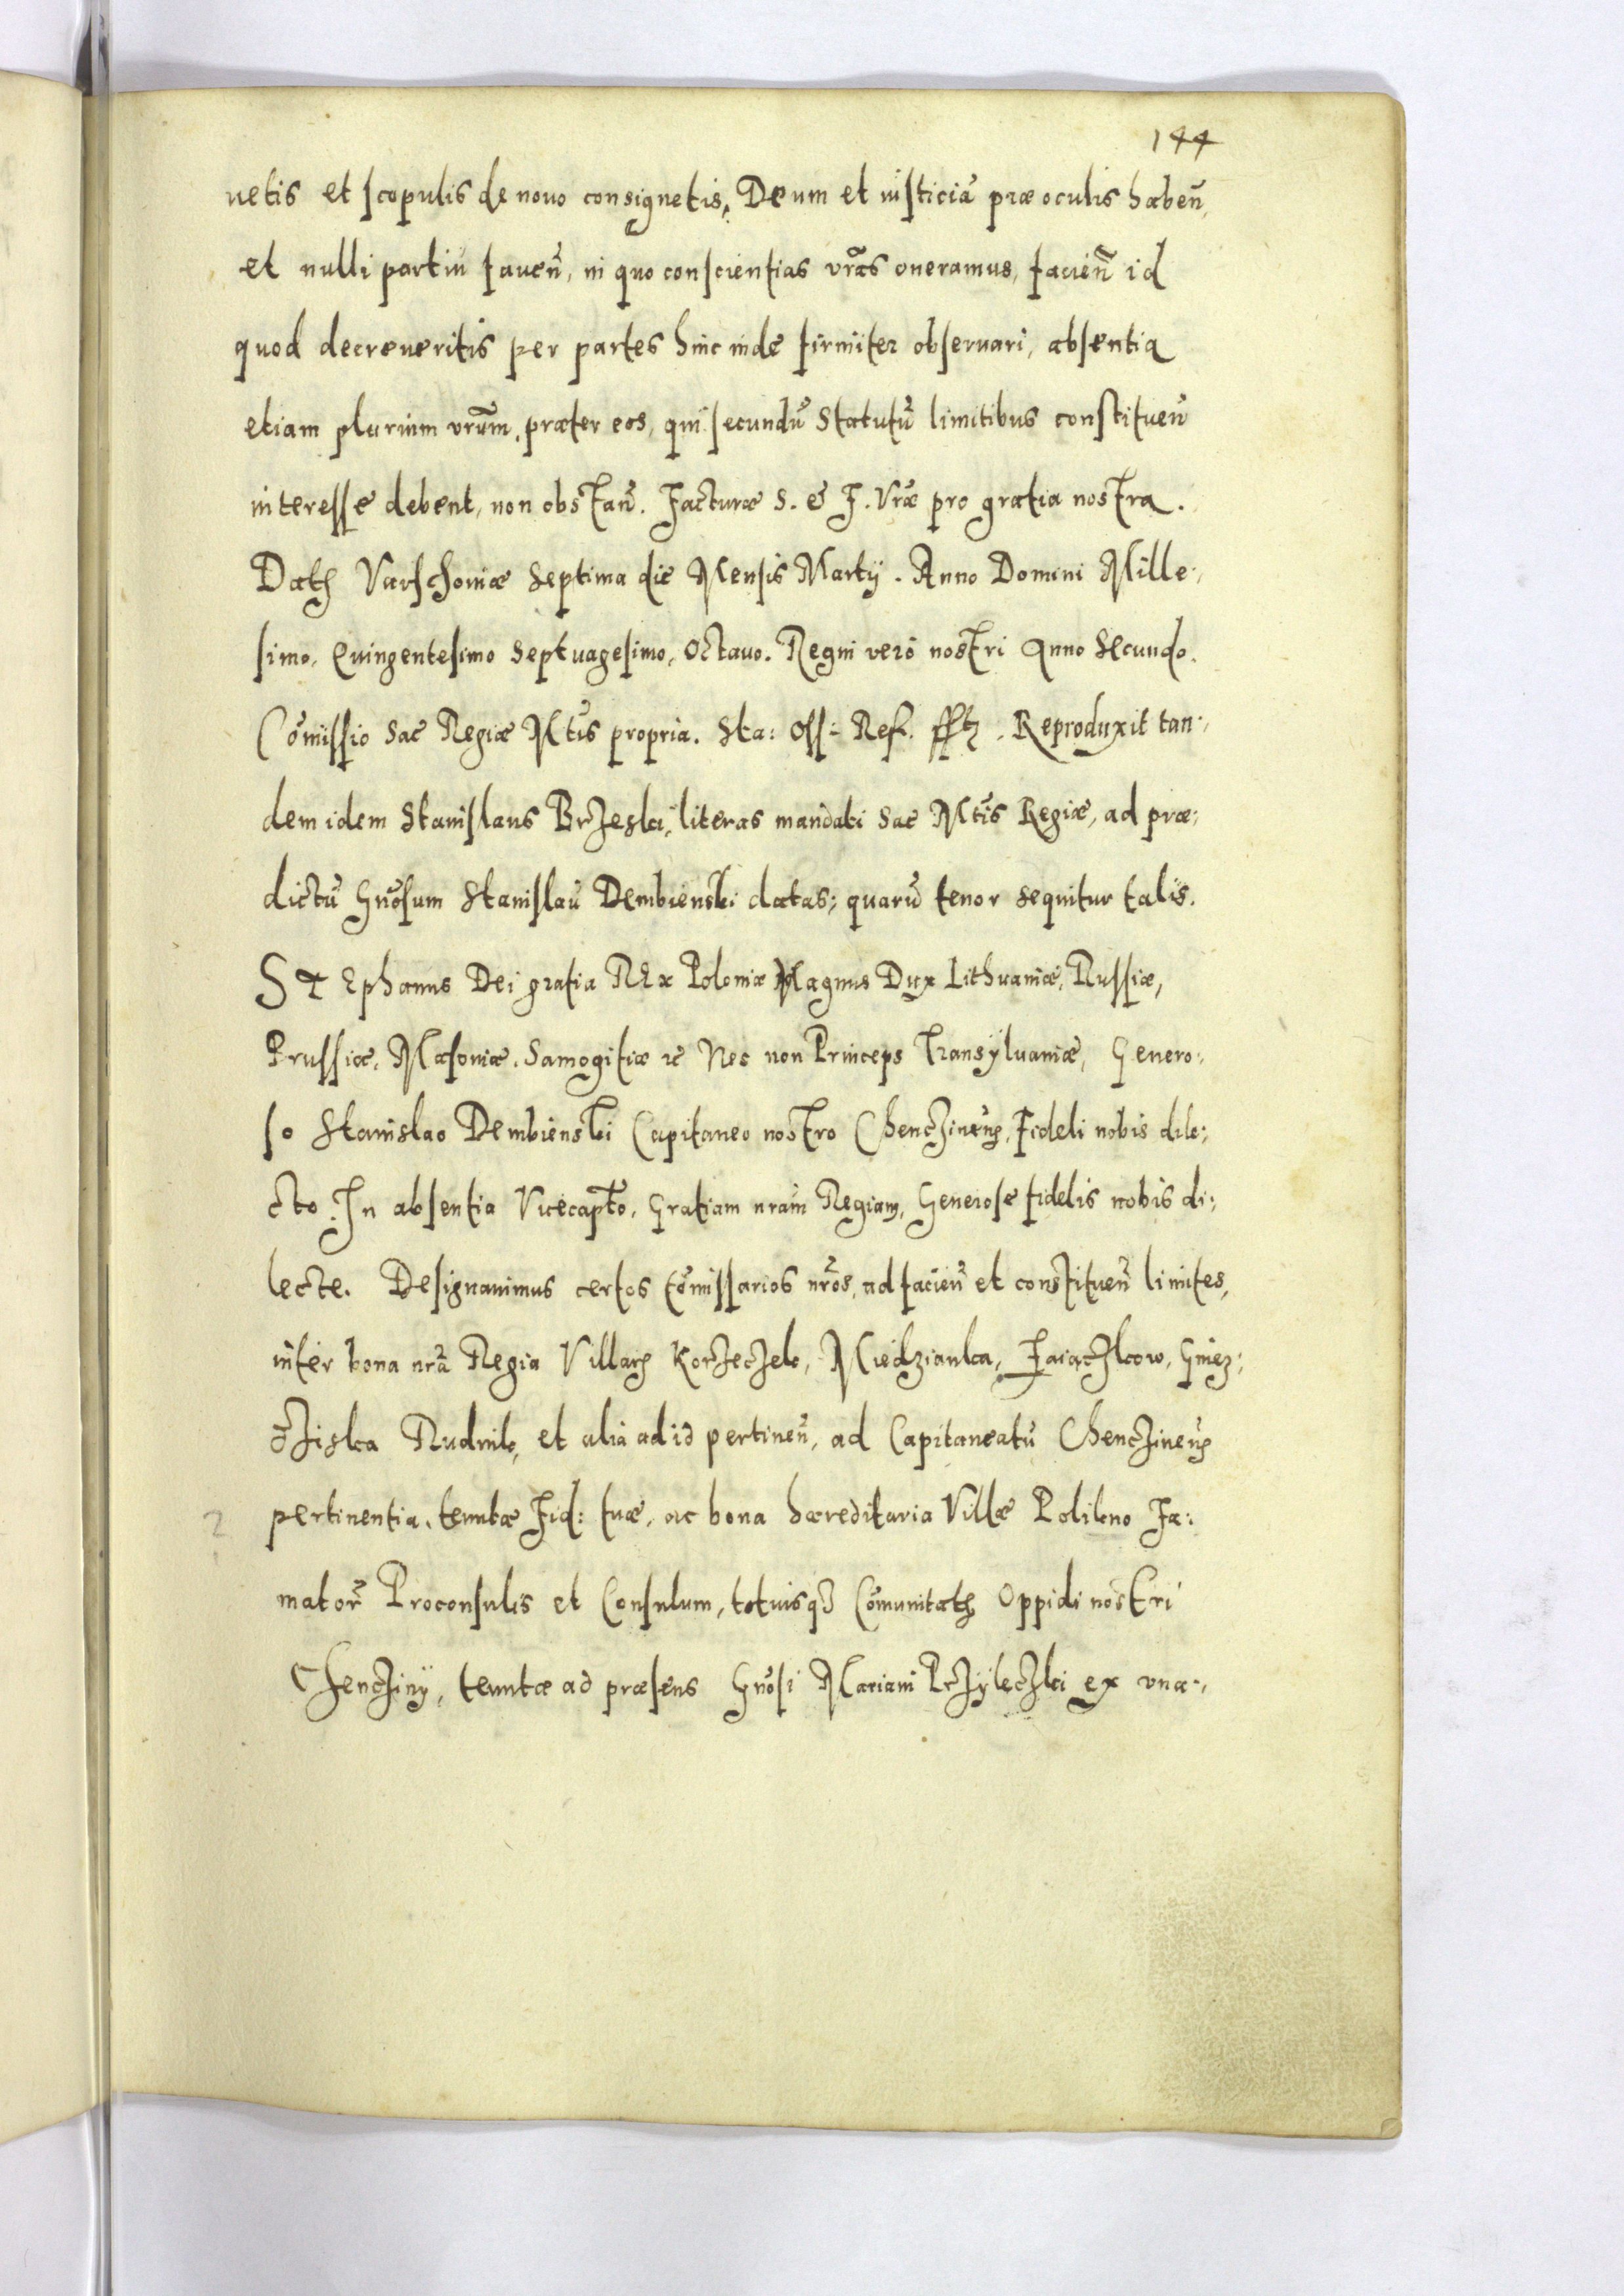 144
uetis et scopulis de nouo consignetis, Deum et iusticiã præ oculis habeñ,
et nulli partiũ faueñ, in quo conscientias vrãs oneramus, facieñ id
quod decreueritis per partes hinc inde firmiter obseruari, absentia
etiam plurium vrũm, præter eos, qui secundũ Statutũ limitibus constitueñ
interesse debent, non obstañ. Facturæ S. & F. Vræ pro gratia nostra.
Datȝ Varschouiæ Septima die Mensis Martij. Anno Domini Mille:
simo, Quingentesimo Septuagesimo, Octauo. Regni vero nostri Anno Secundo.
Cõmissio Sac Regiæ Mtis propria. Sta: Oss: Ref. sstȝ. Reproduxit tan:
dem idem Stanislaus Brzeski, literas mandati Sac Mtis Regiæ, ad præ:
dictũ Gnõsum Stanislaũ Dembienski datas; quarũ tenor sequitur talis.
STEphanus Dei gratia REx Poloniæ Magnus Dux Lithuaniæ, Russiæ,
Prussiæ, Masoniæ, Samogitiæ ꝛc Nec non Princeps Transyluaniæ, Genero:
so Stanislao Dembienski Capitaneo nostro Chencineñ, Fideli nobis dile:
cto. In absentia Vicecapto, Gratiam nram Regiam, Generose fidelis nobis di:
lecte. Designauimus certos Cõmissarios nrõs, ad facieñ et constitueñ limites,
inter bona nrã Regia Villarȝ Korzeczko, Miedzianka, Gniez:
cziska Rudniki, et alia ad id pertineñ, ad Capitaneatũ Chencineñ
pertinentia, tenutæ Fid: tuæ, ac bona hæreditaria Villæ Polikno Fa:
mator̃ Proconsulis et Consulum, totiusqȝ Cõmunitatȝ Oppidi nostri
Chenciny, tenutæ ad præsens Gnõsi Mariani Przyleczki ex vna: